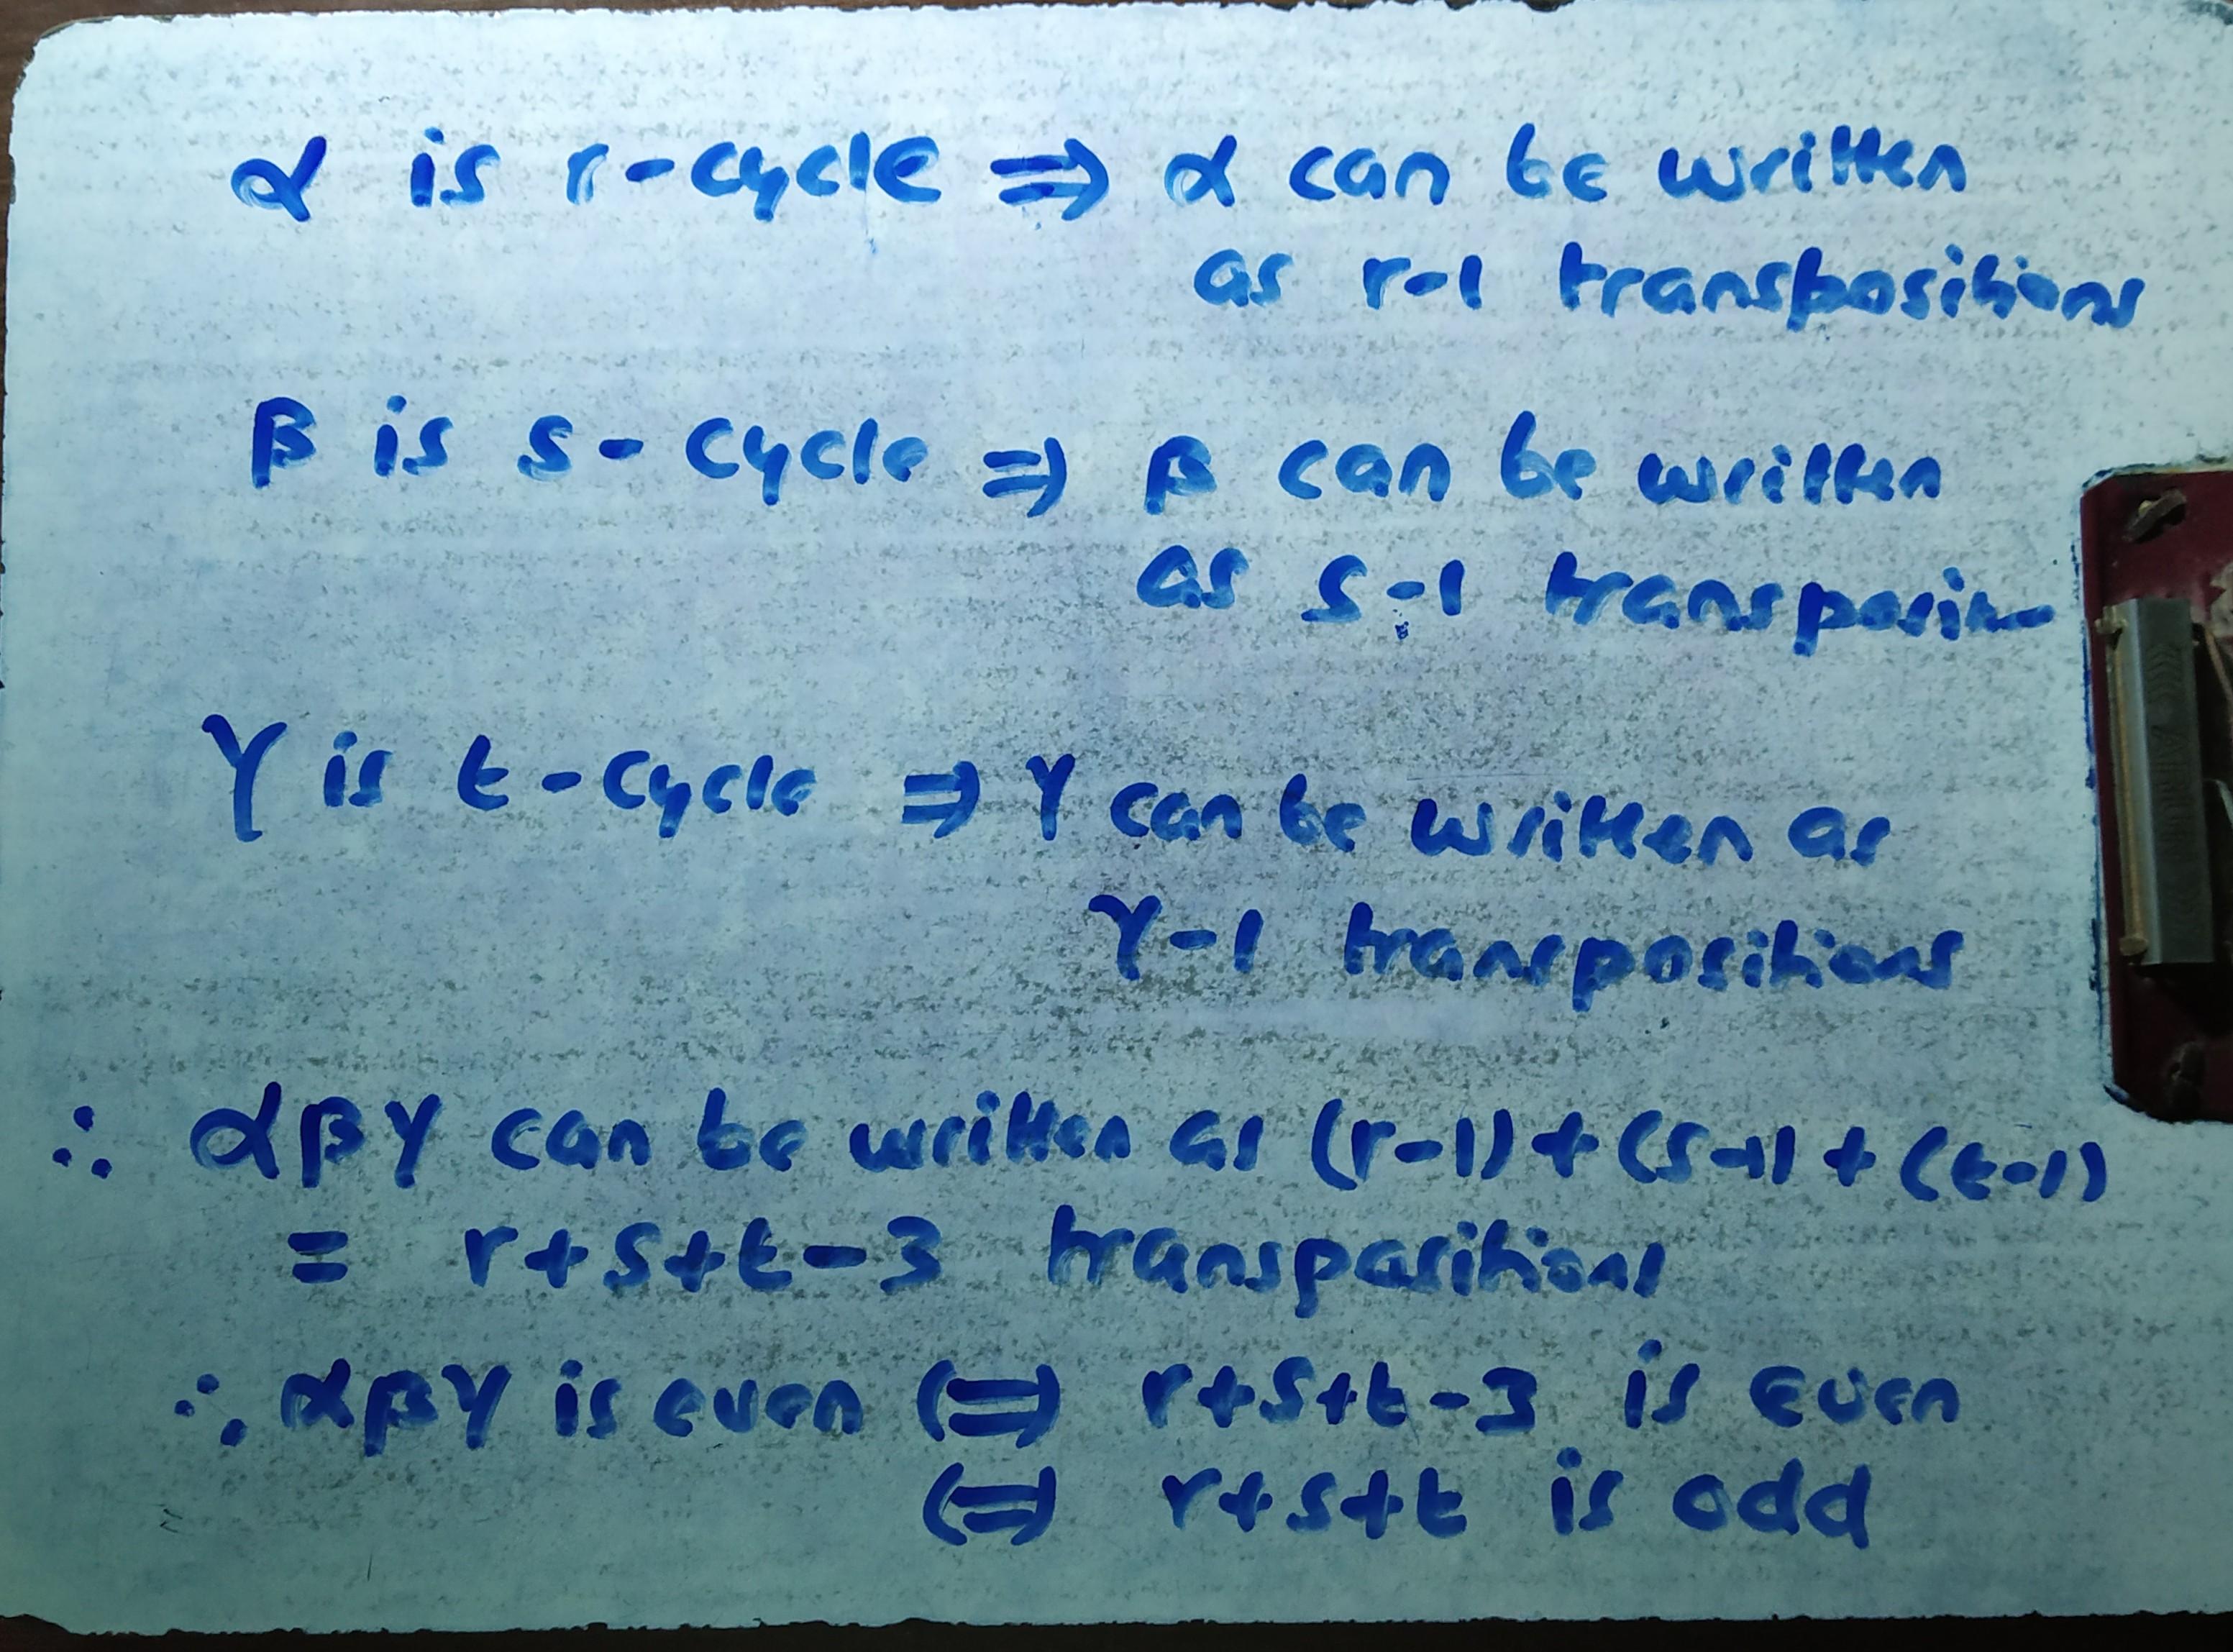 α is r-cycle ⇒ α can be written
as r-1 transpositions
β is s-cycle ⇒ β can be written
as s-1
γ is t-cycle ⇒ γ can be written as
γ-1 transpositions
∴ αβγ can be written as (r-1)+(s-1)+(t-1)
= r+s+t-3 transpositions
∴ αβγ is even ⇔ r+s+t-3 is even
⇔ r+s+t is odd